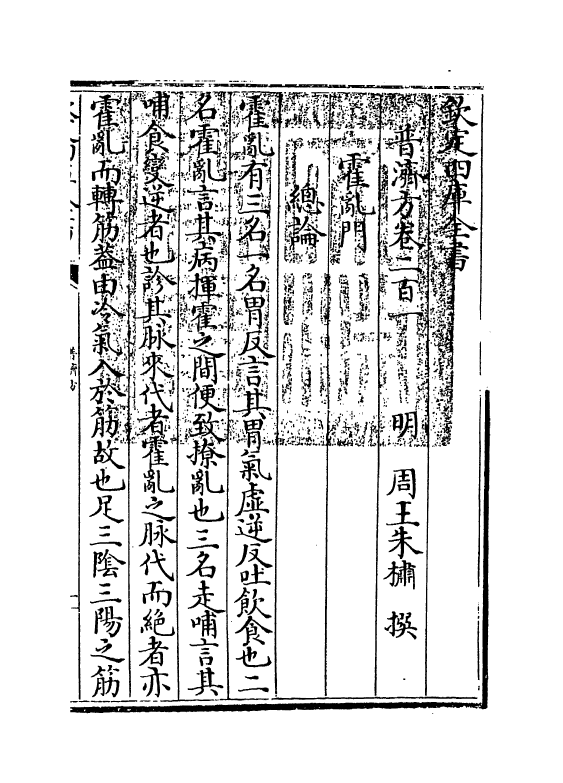 欽定四庫全書
普濟方卷二百一　明　周王朱橚　撰
霍亂門
總論
霍亂有三名一名胃反言其胃氣虛逆反吐飲食也二
名霍亂言其病揮霍之間便致撩亂也三名走哺言其
哺食變逆者也診其脉來代者霍亂之脉代而絶者亦
霍亂而轉筋葢由冷氣入於筋故也足三陰三陽之筋